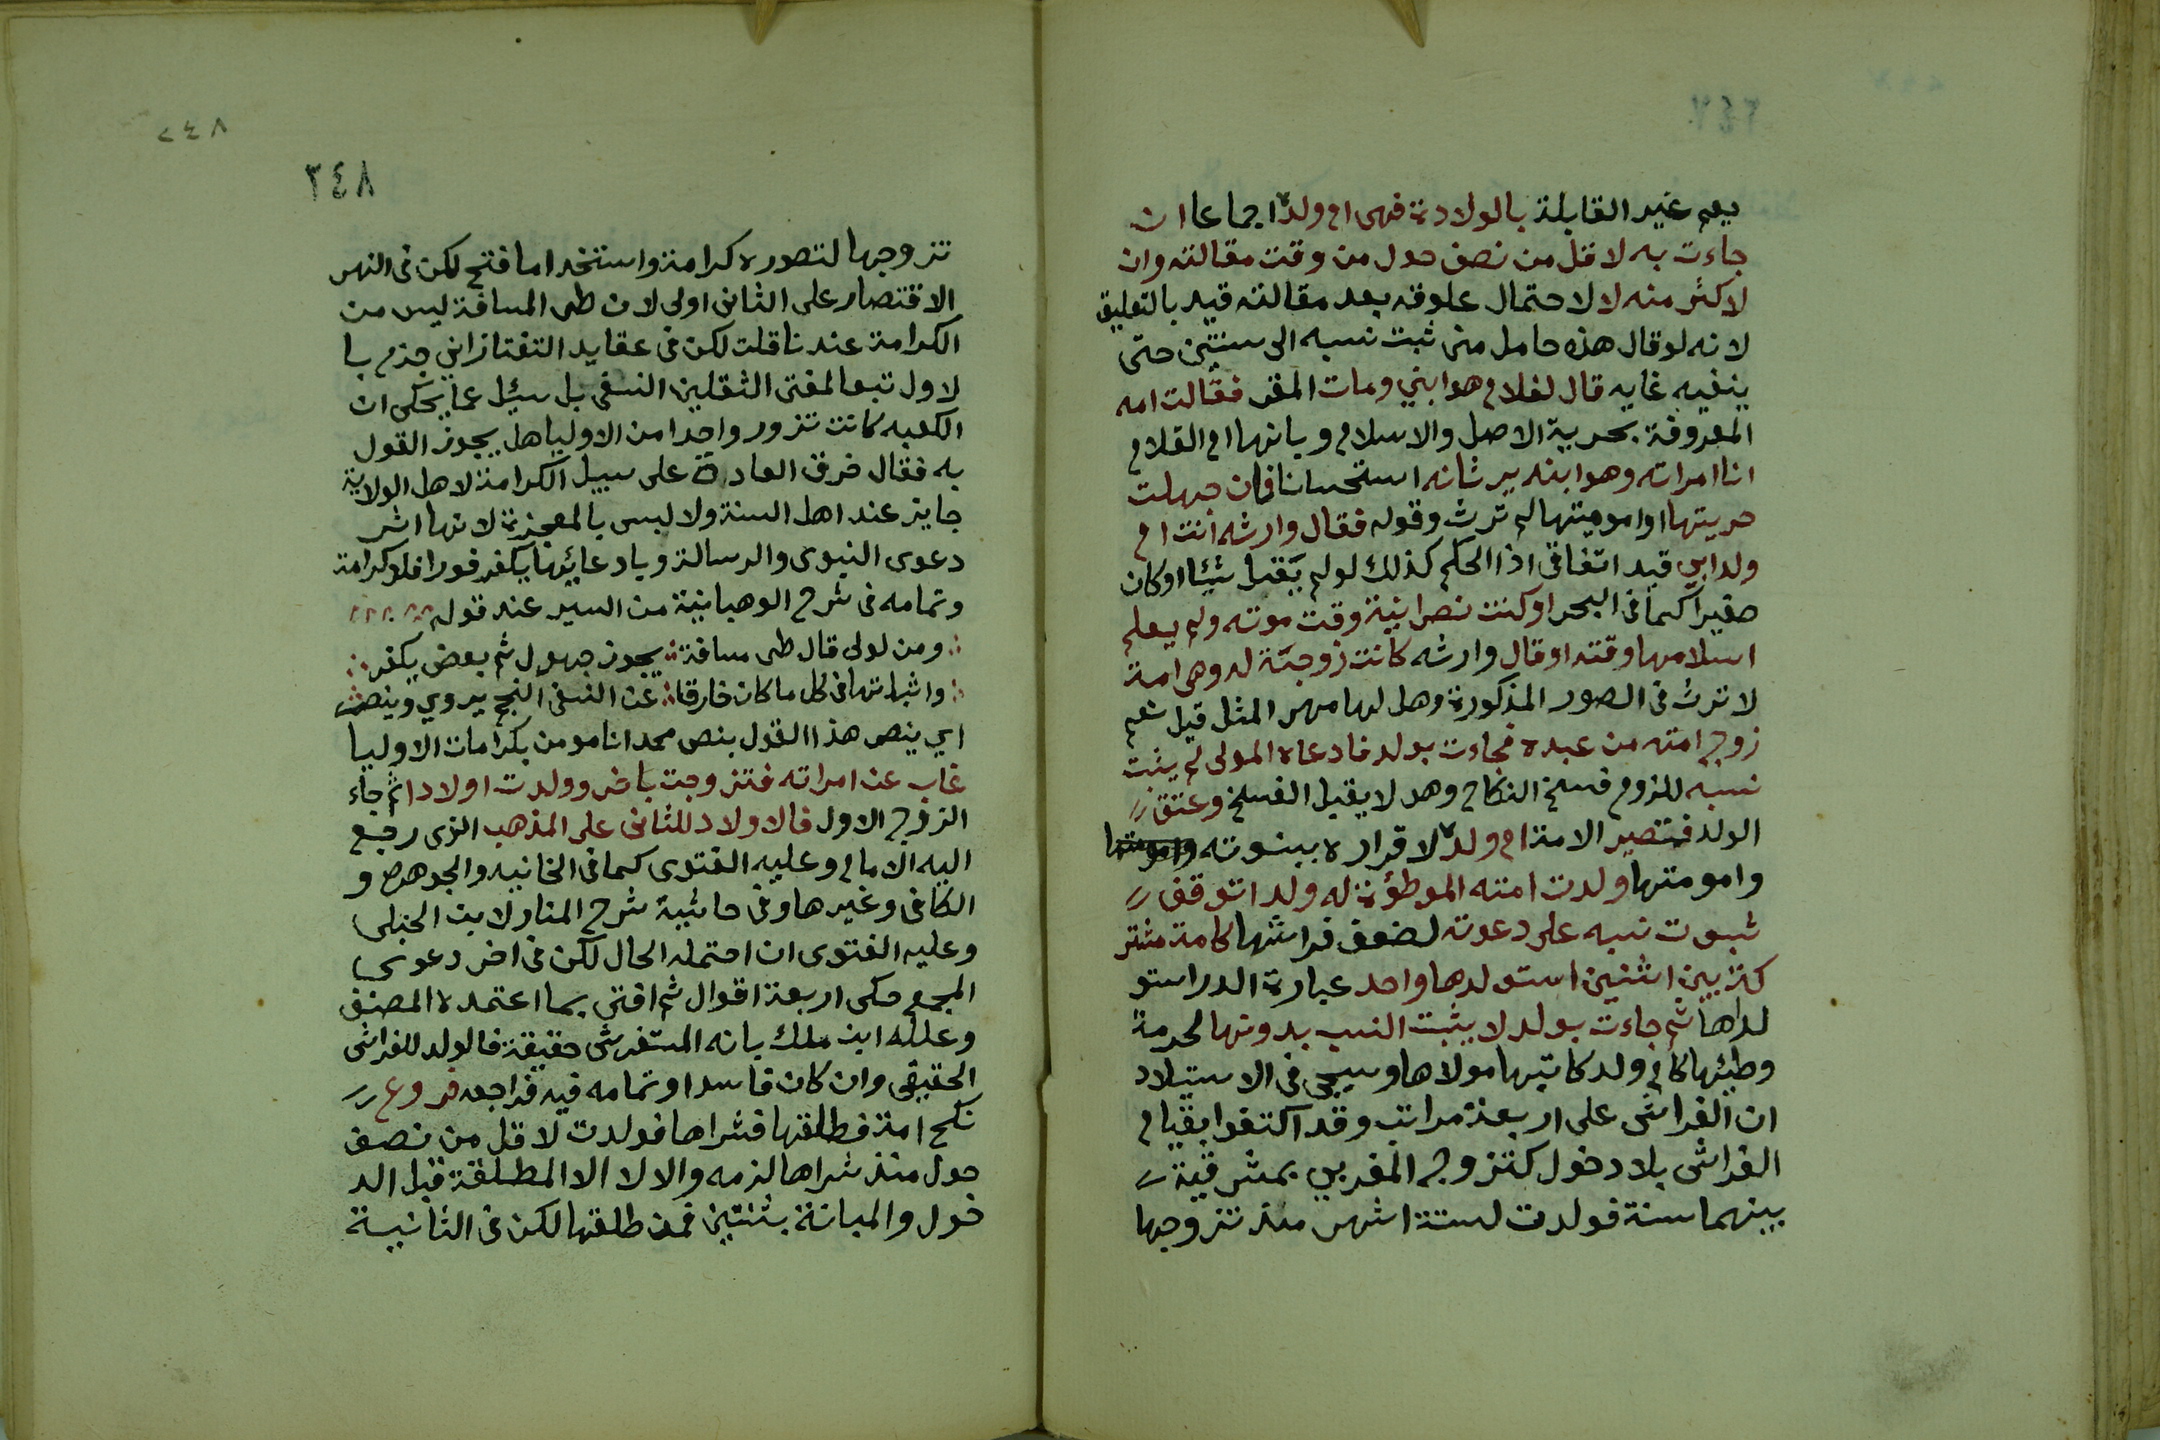 يعم غير القابلة بالولادة فهى ام ولده اجماعا ان
جاءت به لاقل من نصف حول من وقت مقالته وان
لاكثر منه لا لاحتمال علوقه بعد مقالته قيد بالتعليق
لانه لو قال هذه حامل منى ثبت نسبه الى سنتين حتى
ينفيه غايه قال لغلام هو ابني ومات المقر فقالت امه
المعروفة بحرية الاصل والاسلام وبانها ام الغلام
انا امراته وهو ابنه يرثانه استحسانا فان جهلت
حريتها او امومتها لم ترث وقوله فقال وارثه انت ام
ولد ابي قيد اتفاقى اذا الحكم كذلك لو لم يقبل شيئا او كان
صغيرا كما فى البحر او كنت نصرانية وقت موته ولم يعلم
اسلامها وقته او قال وارثه كانت زوجة له وهى امة
لا ترث فى الصور المذكورة وهل لها مهر المثل قيل نعم
زوج امته من عبده فجاءت بولد فادعاه المولى لم يثبت
نسبه للزوم فسخ النكاح وهو لا يقبل الفسخ وعتق
الولد فتصير الامة ام ولده لاقراره ببنوته
وامومتها ولدت امته الموطؤة له ولدا توقف
ثبوت نسبه على دعوته لضعف فراشها كامة مشتر
كة بين اثنين استولدها واحد عبارة الدر استو
لداها ثم جاءت بولد لا يثبت النسب بدونها لحرمة
وطئها كام ولد كاتبها مولاها وسيجى فى الاستيلاد
ان الفراش على اربعة مراتب وقد اكتفوا بقيام
الفراش بلا دخول كتزوج المغربي بمشرقية
بينهما سنة فولدت لستة اشهر منذ تزوجها
٢٤٨
٣٤٨
تزوجها لتصوره كرامة واستخداما فتح لكن فى النهر
الاقتصار على الثانى اولى لان طى المسافة ليس من
الكرامة عندنا قلت لكن فى عقايد التفتازاني جزم با
لاول تبعا لمفتى الثقلين النسفى بل سئل عما يحكى ان
الكعبه كانت تزور واحدا من الاوليا هل يجوز القول
به فقال خرق العادة على سبيل الكرامة لاهل الولاية
جايز عند اهل السنة ولا لبس بالمعجزة لانها اثر
دعوى النبوى والرسالة وبادعائها يكفر فورا فلا كرامة
وتمامه فى شرح الوهبانية من السير عند قوله
ومن لولى قال طى مسافة يجوز جهول ثم بعض يكفر
واثباتها فى كل ما كان خارقا عن النسفى النجم يروي وينصر
اي ينصر هذا القول بنص محمد انا مومن بكرامات الاوليا
غاب عن امراته فتزوجت باخر وولدت اولادا ثم جاء
الزوج الاول فالاولاد للثانى على المذهب الذى رجع
اليه الامام وعليه الفتوى كما فى الخانيه والجوهره و
الكافى وغيرها وفى حاشية شرح المنار لابن الحنبلى
وعليه الفتوى ان احتمله الحال لكن فى اخر دعوى
المجمع حكى اربعة اقوال ثم افتى بما اعتمده المصنف
وعلله ابن ملك بانه المستفرش حقيقة فالولد للفراش
الحقيقي وان كان فاسدا وتمامه فيه فراجعه فروع
نكح امة فطلقها فشراها فولدت لاقل من نصف
حول منذ شراها لزمه والا لا الا المطلقة قبل الد
خول والمبانة بثنتين فمن طلقها لكن فى الثانية